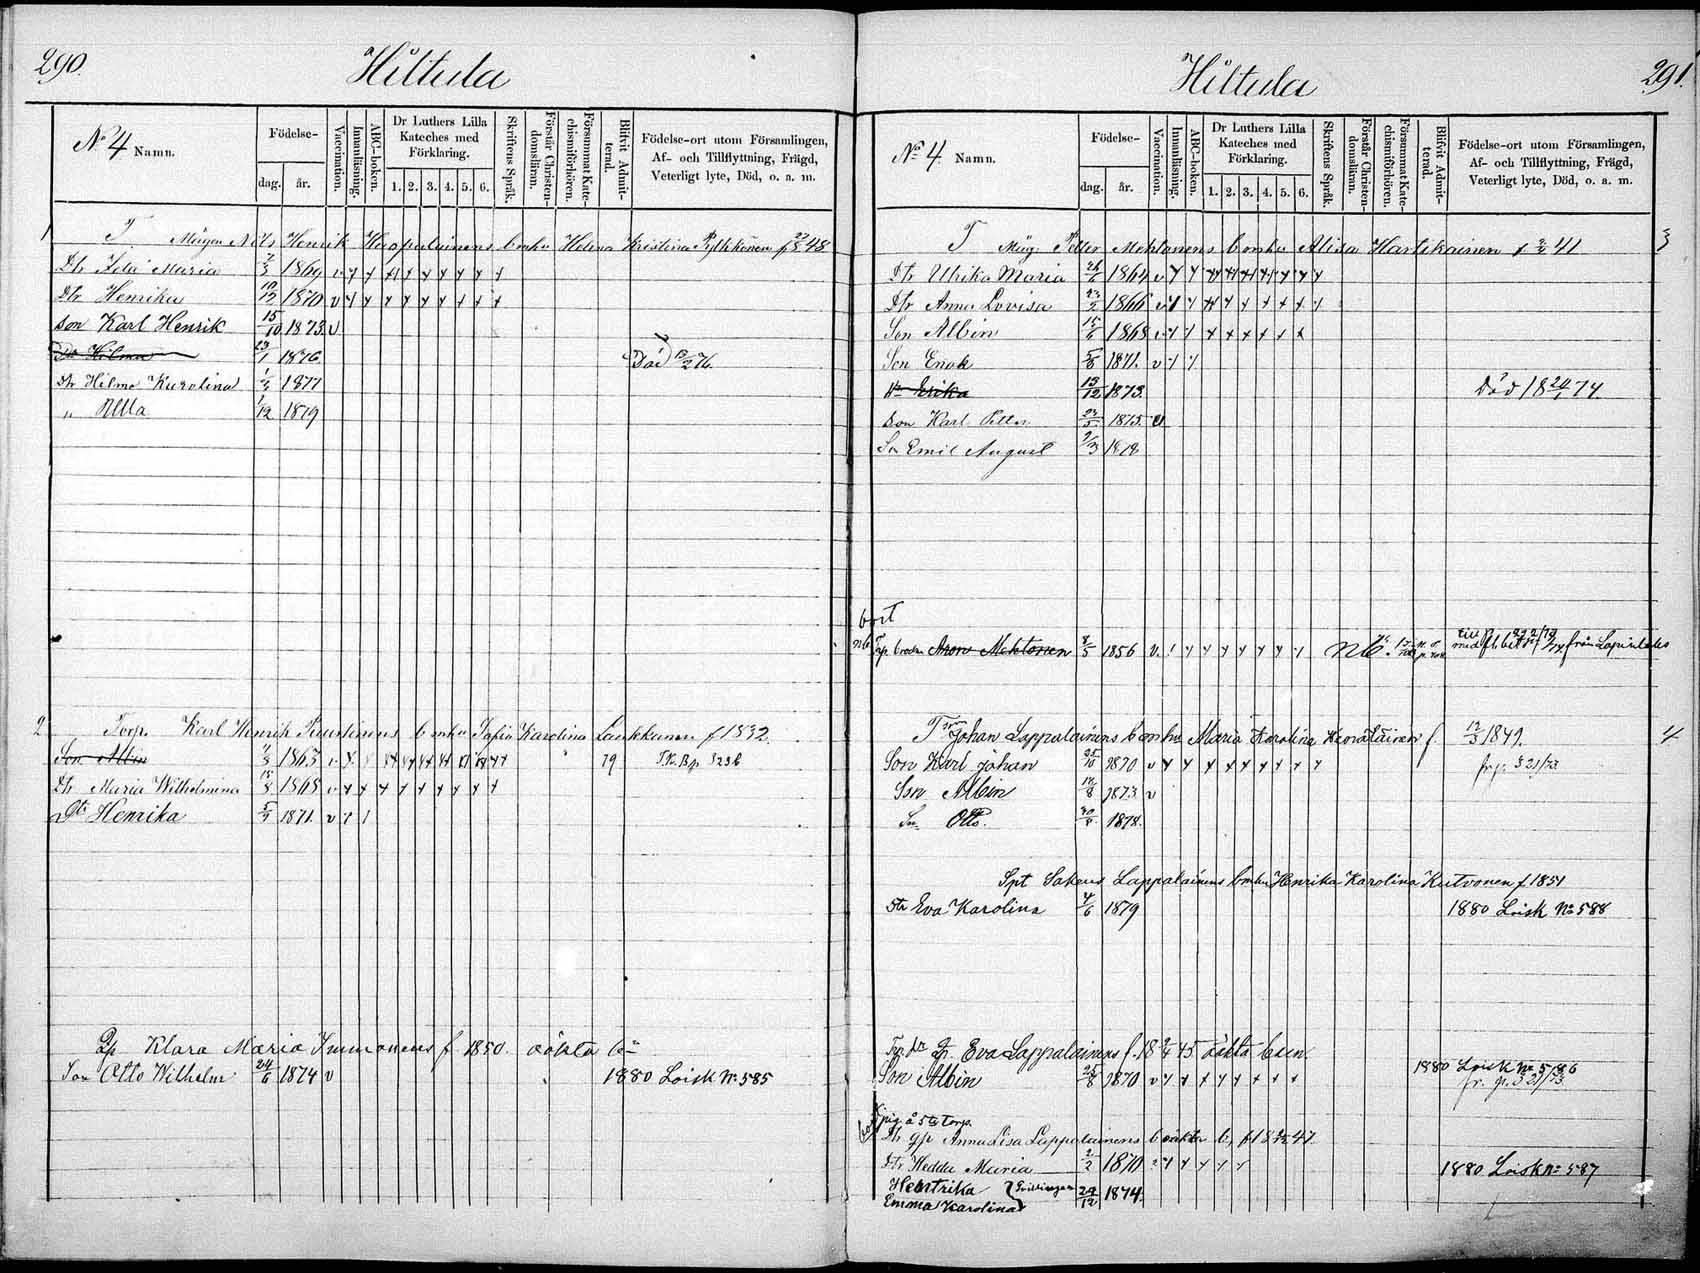 290.
Hiltula
N° 4 Namn.
Födelse-
dag. år.
Vaccination.
Innanläsning.
ABC-boken.
Dr Luthers Lilla Kateches med Förklaring.
1. 2. 3. 4. 5. 6.
Skriftens Språk.
Förstår Christendomsläran.
Försummat Katechismiförhören.
Blifvit Admitterad.
Födelse-ort utom Församlingen, Af- och Tillflyttning, Frägd, Veterligt lyte, Död, o. a. m.
1 T. Mågen Nils Henrik Haapalainens b m hu Helena Kristina Pylkkönen f 48
Dtr Ida Maria 2/3 1869 v
Dtr Henrika 10/12 1870 v
Son Karl Henrik 15/10 1873 v
Dr Hilma 1876 Död 13/2 76.
Dtr Hilma Karolina 1877
„ Alla 1/12 1879
2 Torp. Karl Henrik Ruustinens b m hu Sofia Karolina Laukkanen f 1832.
Son Albin 1863 v 79 T.K.B p 3236
Dtr Maria Wilhelmina 15/8 1868 v
Dtr Henrika 1871. v
Gp Klara Maria Immonens f 1850. oäkta b:n
Son Otto Wilhelm 24/6 1874 v 1880 Loisk N° 585
291.
Hiltula
N° 4. Namn.
Födelse-
dag. år.
Vaccination.
Innanläsning.
ABC-boken.
Dr Luthers Lilla Kateches med Förklaring.
1. 2. 3. 4. 5. 6.
Skriftens Språk.
Förstår Christendomsläran.
Försummat Katechismiförhören.
Blifvit Admitterad.
Födelse-ort utom Församlingen, Af- och Tillflyttning, Frägd, Veterligt lyte, Död, o. a. m.
T Måg Petter Mehtonens b m hu Alisa Hartikainen f 41 3
Dtr Ulrika Maria 1864 v
Dtr Anna Lovisa 23/2 1866 v
Son Albin 15/6 1868 v
Son Enok 5/8 1871. v
Dr Erika 13/12 1873. Död 18 24/1 74.
Son Karl Petter 23/5 1875. v
Son Emil August 9/3 1878
bort
Torp broder Aron Mehtonen 8/5 1856 v. från Lapinlaks
T Johan Lappalainens b m hu Maria Karolina f. 12/3 1849. 4
Son Karl Johan 25/10 1870 v fr. p. 321/73
Son Albin 14/8 1873 v
Sn Otto. 30/8 1878.
Spt Sakeus Lappalainens b m hu Henrika Karolina Kutvonen f 1851
Dtr Eva Karolina 4/6 1879 1880 Loisk N° 588
Torp dr Gp. Eva Lappalainens f. 18 45 oäkta b:sn.
Son Albin 25/8 1870 v 1880 Loisk N° 586
fr. p. 321/73
pig. å 5te Torp.
Dtr gp Anna Lisa Lappalainens b oäkta b, f 18 47
Dtr Hedda Maria 2/2 1870 1880 Loisk N° 587
Hentrika } Tvillingar 29/12 1874.
Emma Karolina